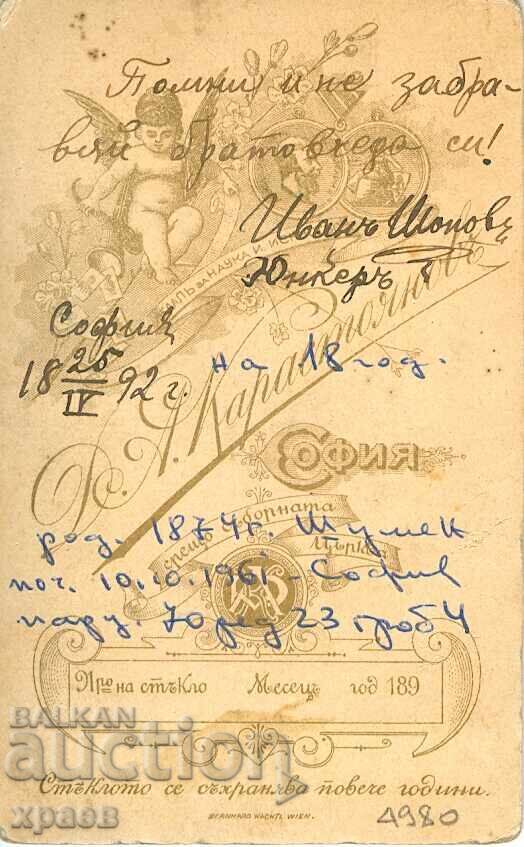 Помни и не забра-
вяй братовчеда си!
Иванъ Шоповъ
Юнкеръ
ЗА НАУКА И
София
18 25/IV 92 г.
на 18 год.
Д. А. Карастояновъ
София
род. 1874 г.
срещу Соборната Църква
поч. 10.10.1961 - София
пар. 70 ред 23 гроб 4
№ на стъкло Месецъ год 189
BALKAN
auction
храбв
Стъклото се съхранява повече години.
BERNHARD WACHTL, WIEN.
4980